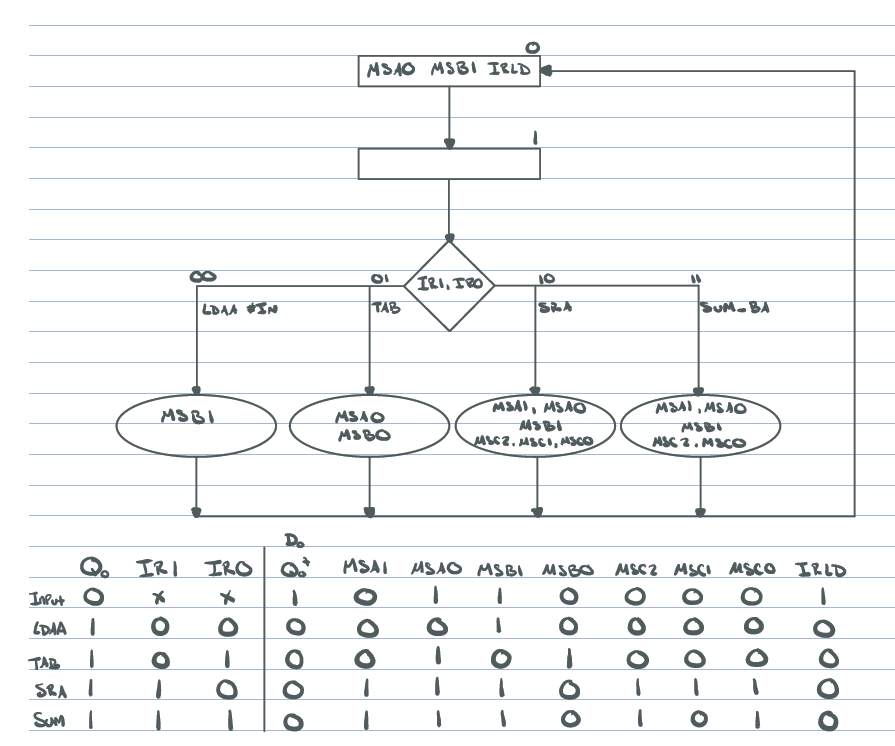 0
MSA0 MSB1 IRLD
1
IR1, IR0
00 01 10 11
LDAA #IN TAB SRA SUM_BA
MSB1
MSA0
MSB0
MSA1, MSA0
MSB1
MSC2, MSC1, MSC0
MSA1, MSA0
MSB1
MSC2, MSC0
D₀
Q₀ IR1 IR0 Q₀⁺ MSA1 MSA0 MSB1 MSB0 MSC2 MSC1 MSC0 IRLD
Input 0 x x 1 0 1 1 0 0 0 0 1
LDAA 1 0 0 0 0 0 1 0 0 0 0 0
TAB 1 0 1 0 0 1 0 1 0 0 0 0
SRA 1 1 0 0 1 1 1 0 1 1 1 0
SUM 1 1 1 0 1 1 1 0 1 0 1 0